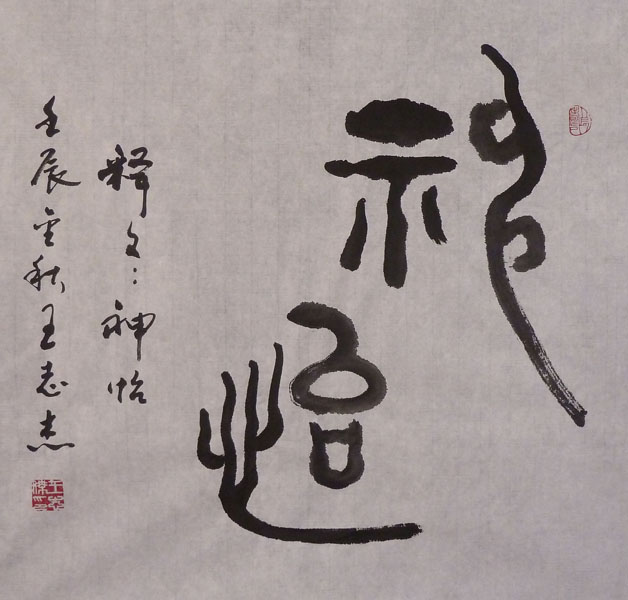 神怡
释文：神怡
壬辰金秋王志杰